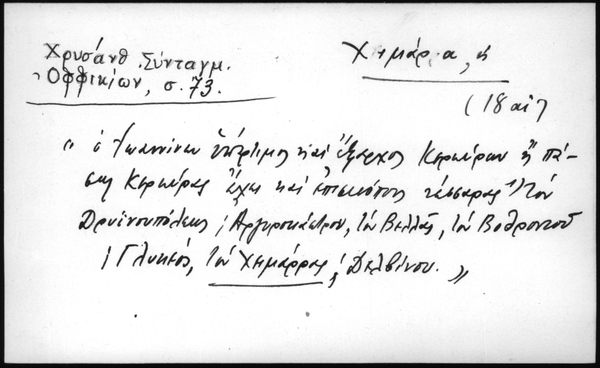 Χρυσάνθ. Σύνταγμ.
Ὀφφικίων, σ. 73.
Χιμάρα, ἡ
(18 αἰ)
" ὁ Ἰωαννίνων ὑπέρτιμος καὶ ἔξαρχος Κερκύρων ἢ πά-
σης Κερκύρας ἔχει καὶ ἐπισκόπους τέσσαρας τὸν
Δρυϊνουπόλεως ἢ Ἀργυροκάστρου, τὸν Βελλᾶς, τὸν Βοθροντοῦ
ἢ Γλυκέος, τὸν Χιμάρρας ἢ Δελβίνου. "